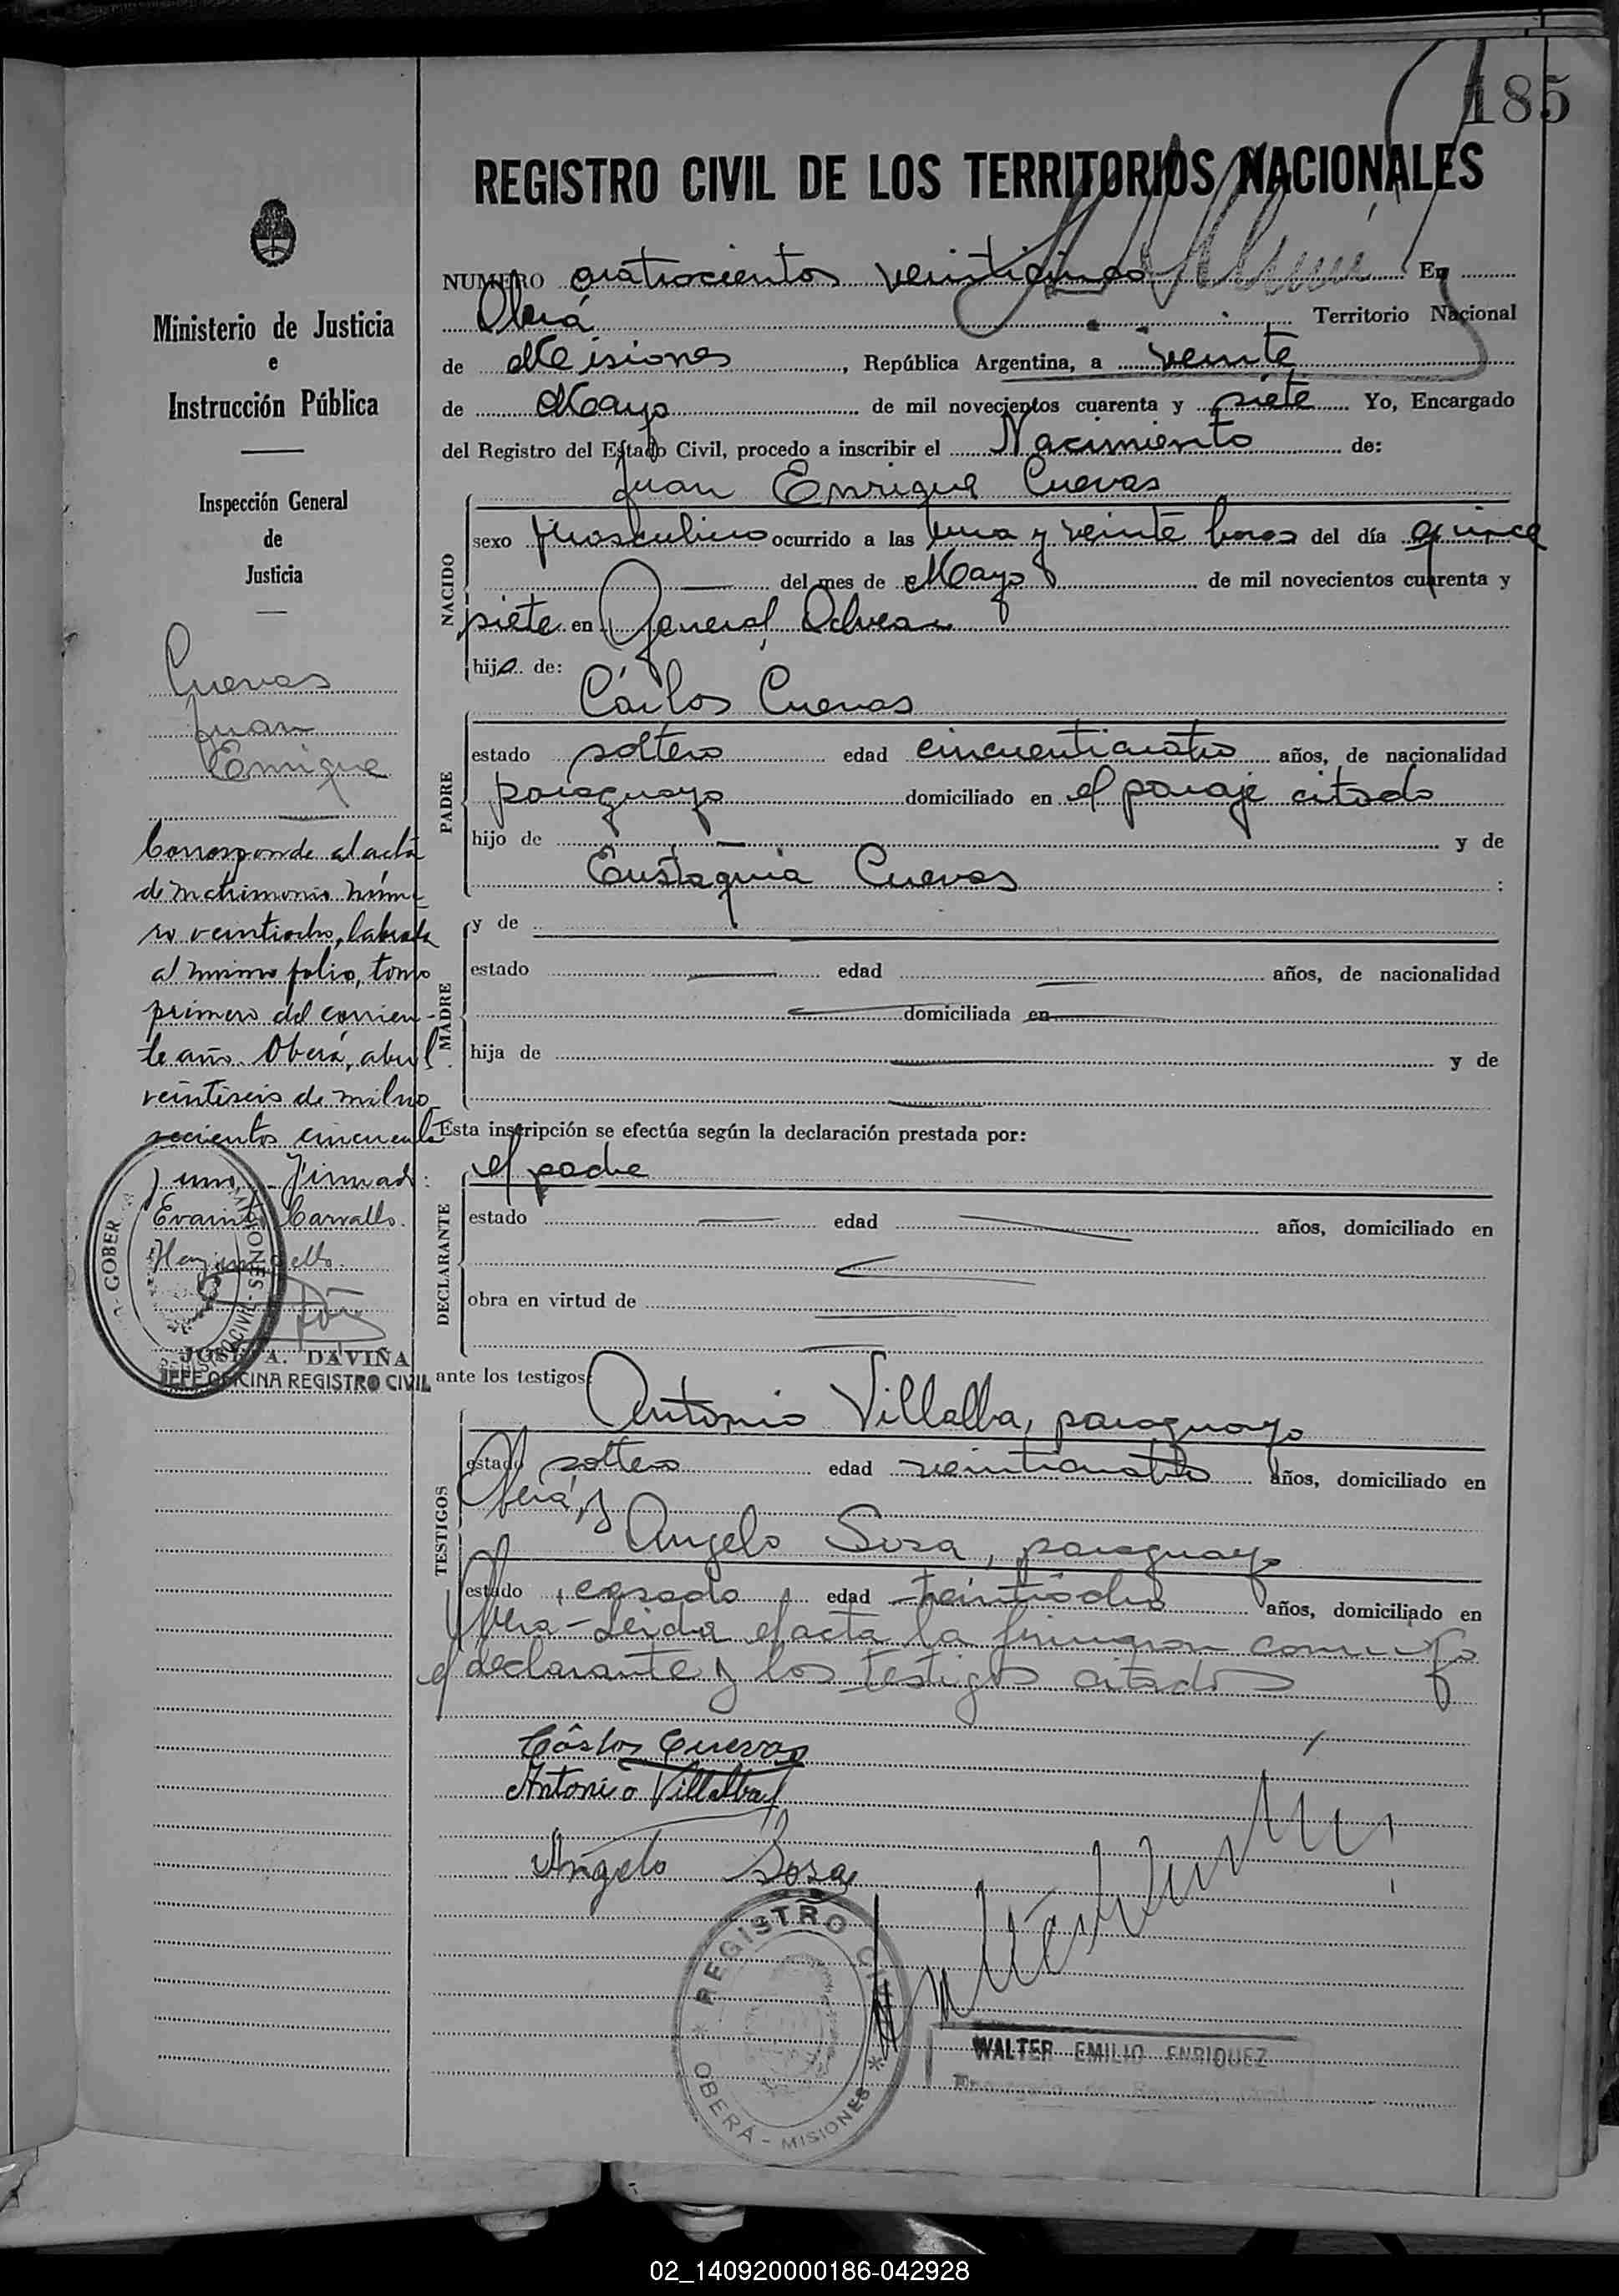 185
REGISTRO CIVIL DE LOS TERRITORIOS NACIONALES
NUMERO cuatrocientos veinticinco En
Oberá Territorio Nacional
de Misiones, República Argentina, a veinte
de Mayo de mil novecientos cuarenta y siete Yo, Encargado
del Registro del Estado Civil, procedo a inscribir el Nacimiento de:
Juan Enrique Cuevas
NACIDO
sexo masculino ocurrido a las una y veinte horas del día quince
del mes de Mayo de mil novecientos cuarenta y
siete en General Alvear
hijo de:
Cárlos Cuevas
PADRE
estado soltero edad cincuenticuatro años, de nacionalidad
paraguayo domiciliado en el paraje citado
hijo de y de
Eustaquia Cuevas :
MADRE
y de
estado edad años, de nacionalidad
domiciliada en
hija de y de
Esta inscripción se efectúa según la declaración prestada por:
el padre
DECLARANTE
estado edad años, domiciliado en
obra en virtud de
ante los testigos:
Antonio Villalba, paraguayo
TESTIGOS
estado soltero edad veinticuatro años, domiciliado en
Oberá y
Angelo Sosa, paraguayo
estado casado edad treintiocho años, domiciliado en
Oberá - Leida el acta la firmaron conmigo
el declarante y los testigos citados
Cárlos Cuevas
Antonio Villalba
Angelo Sosa
REGISTRO CIVIL
OBERÁ - MISIONES
WALTER EMILIO ENRIQUEZ
Ministerio de Justicia
e
Instrucción Pública
Inspección General
de
Justicia
Cuevas
Juan
Enrique
Corresponde al acta
de matrimonio núme-
ro veintiocho, labrada
al mismo folio, tomo
primero del corrien-
te año. Oberá, abril
veintiseis de mil no-
vecientos cincuenta
y uno. Firmado:
Evaristo Carvallo.
Hay un sello.
GOBER
MISIONES
REGISTRO CIVIL
JOSE A. DAVIÑA
JEFE OFICINA REGISTRO CIVIL
02_140920000186-042928